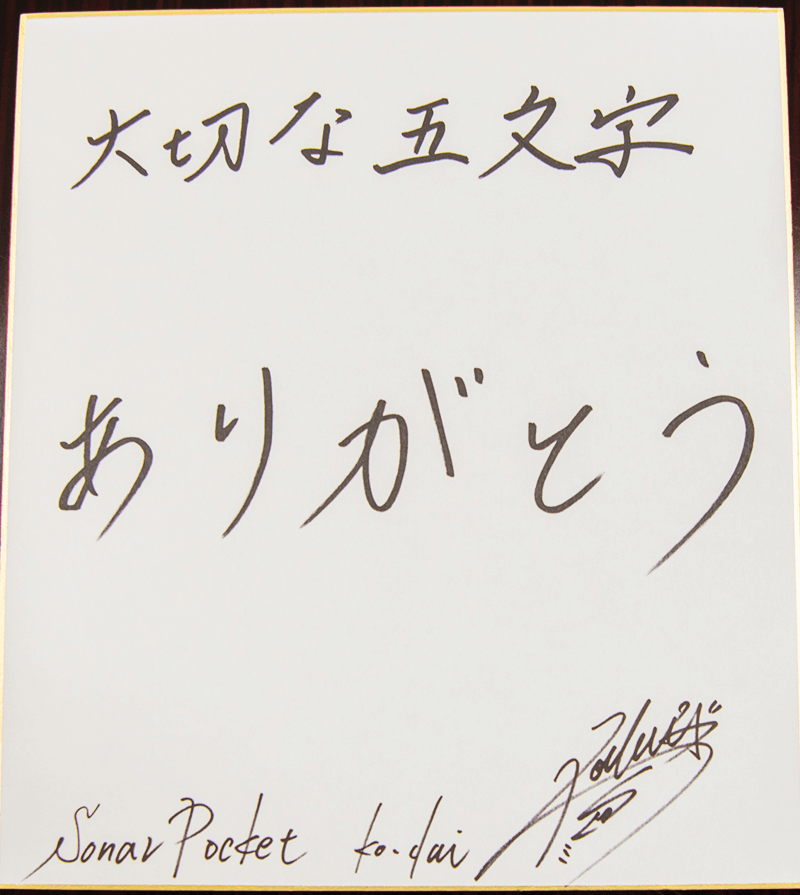 大切な五文字
ありがとう
Sonar Pocket ko-dai